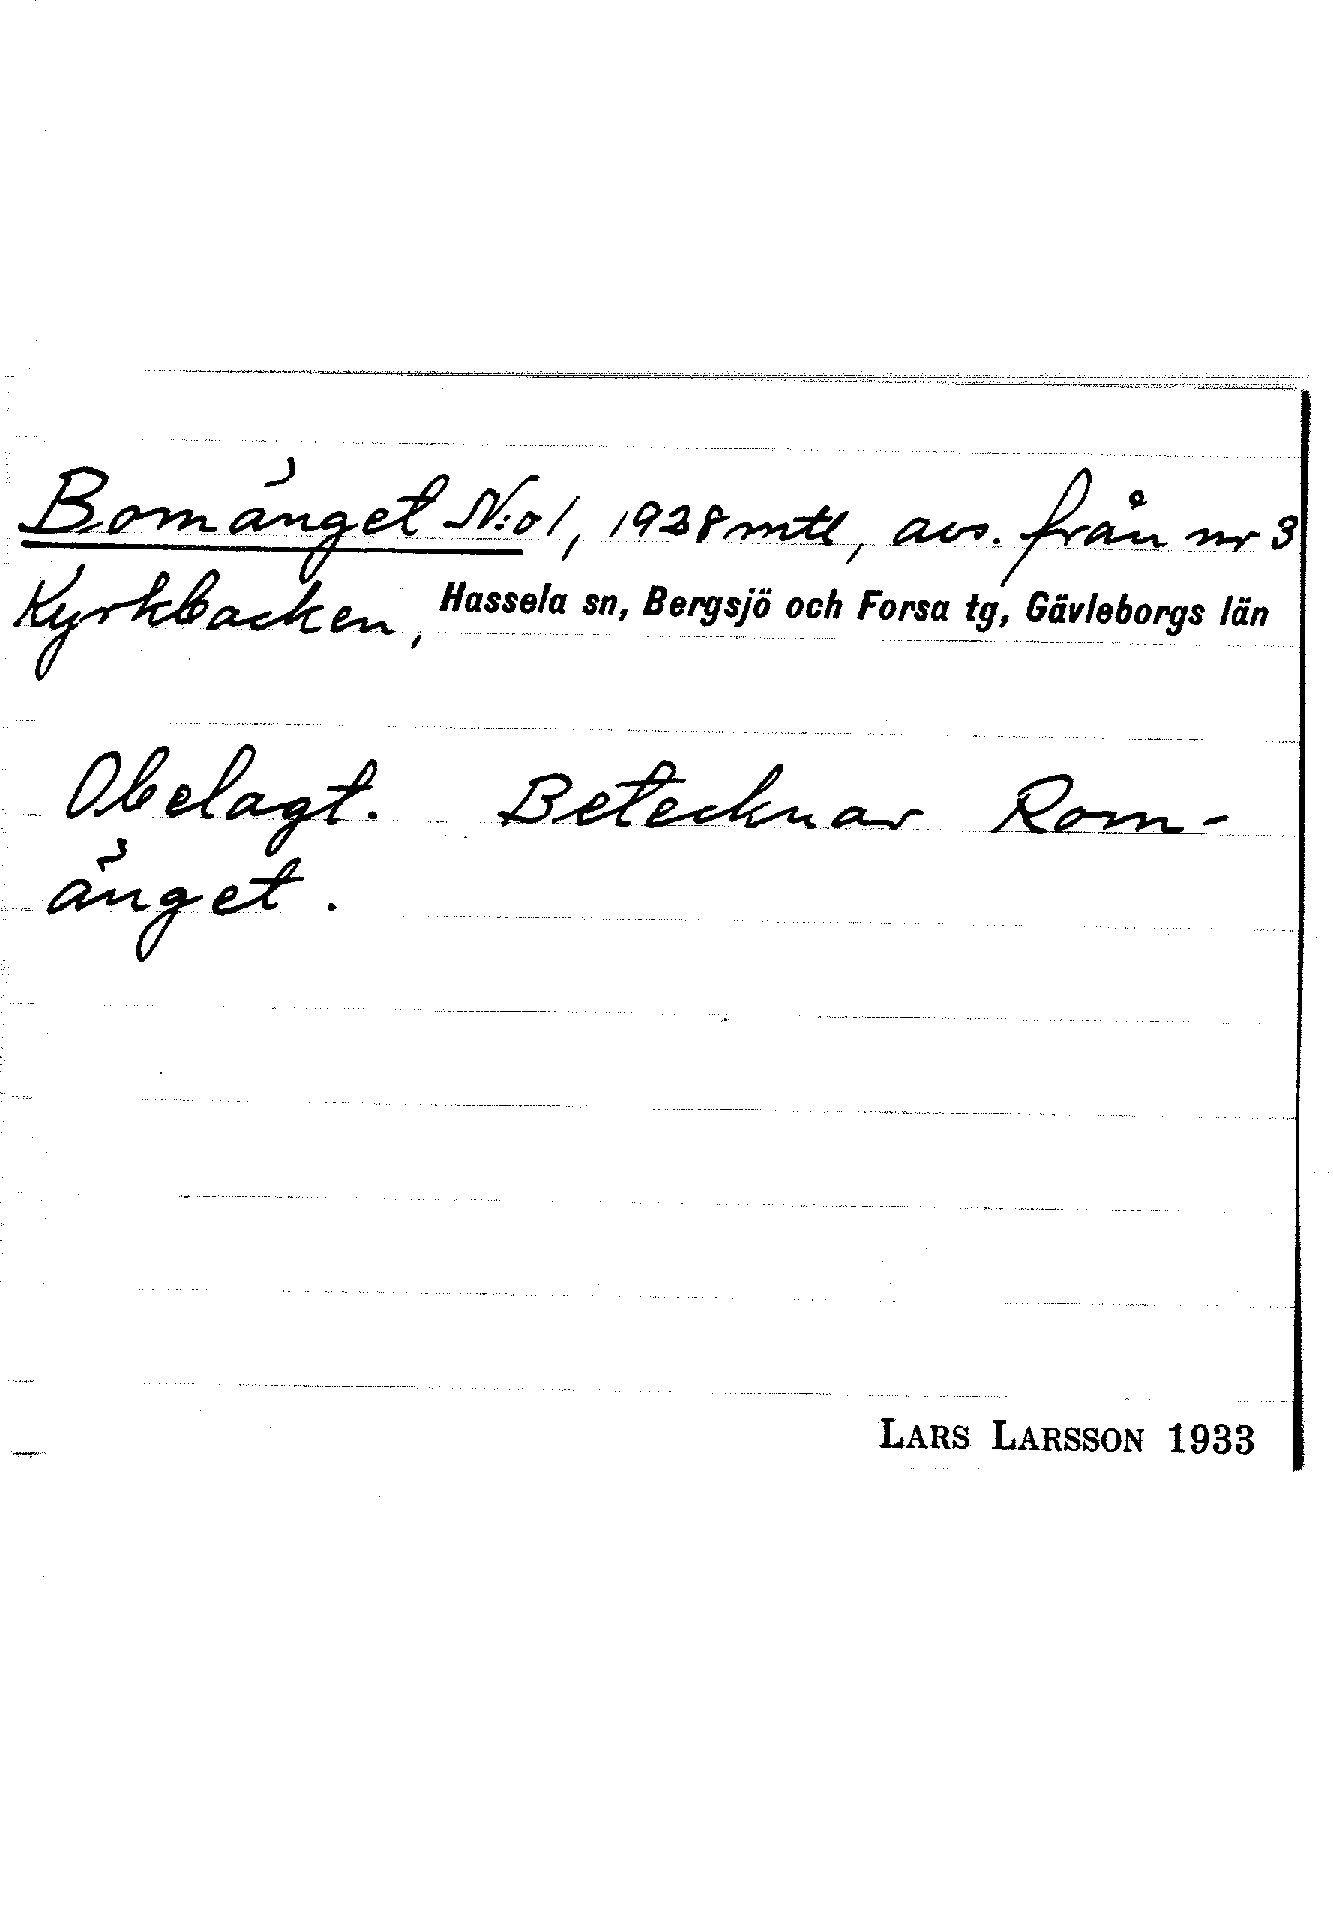 Bomänget N:o 1, 1928 mtl, avs. från nr 3
Kyrkbacken, Hassela sn, Bergsjö och Forsa tg, Gävleborgs län
Obelagt. Betecknar Rom-
änget.
LARS LARSSON 1933